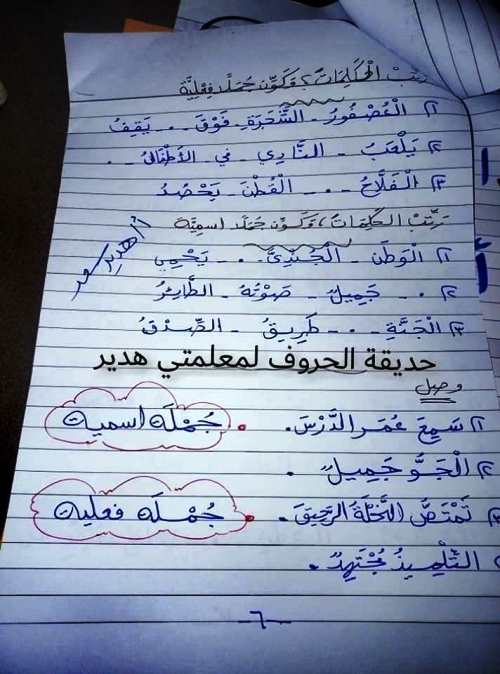 رَتِّبْ الْكَلِمَاتُ، وَكَوِّن جُمَلًا فِعْلِيَّة
١) الْعُصْفُورُ - الشَّجَرَةِ - فَوْقَ - . - يَقِفُ
٢) يَلْعَبُ - النَّادِي - في - الأَطْفَالُ - .
٣) الْفَلَّاحُ - . - الْقُطْنَ - يَحْصُدُ
رَتِّبْ الْكَلِمَاتُ، وَكَوِّن جُمَلًا اسمِيَّة
١) الْوَطَنَ - الْجُنْدِيُّ - . - يَحْمِي
٢) . - جَمِيلٌ - صَوْتُهُ - الطَّائِرُ
٣) الْجَنَّةِ - . - طَرِيقُ - الصِّدْقُ
أ/ هدير
حديقة الحروف لمعلمتي هدير
صِل
١) سَمِعَ عُمَر الدَّرْسَ.
جُمْلَه اسميه
٢) الْجَوُّ جَمِيلٌ .
٣) تَمْتَصُّ النَّحْلَةُ الرَّحِيقَ.
جُمْلَه فعليه
التِّلْمِيذُ مُجْتَهِدٌ .
-٦-